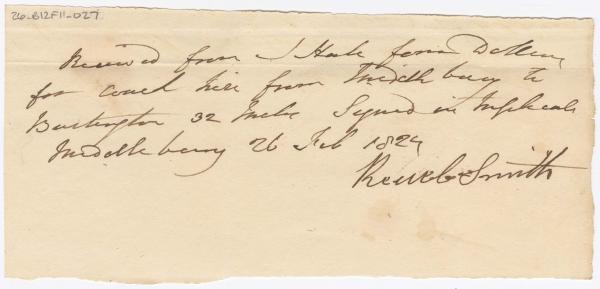 26-B12F11-027
Received from J Hale four Dollars
for coach hire from Middlebury to
Burlington 32 Miles Signed in Duplicate
Middlebury 26 Feb 1824
Smith